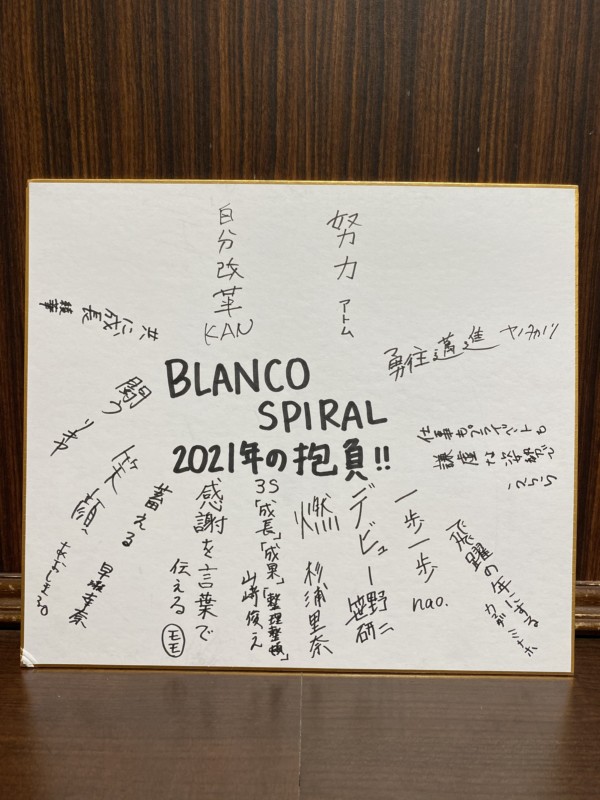 自分改革
KAN
努力
アトム
共に成長
勇往邁進
BLANCO
SPIRAL
2021年の抱負!!
仕事もプライベートも
飛躍の年にする
一歩一歩
nao.
デビュー
笹野研二
燃
杉浦里奈
3S「成長」「成果」「整理整頓」
山崎俊え
感謝を言葉で
伝える
モモ
蓄える
笑顔